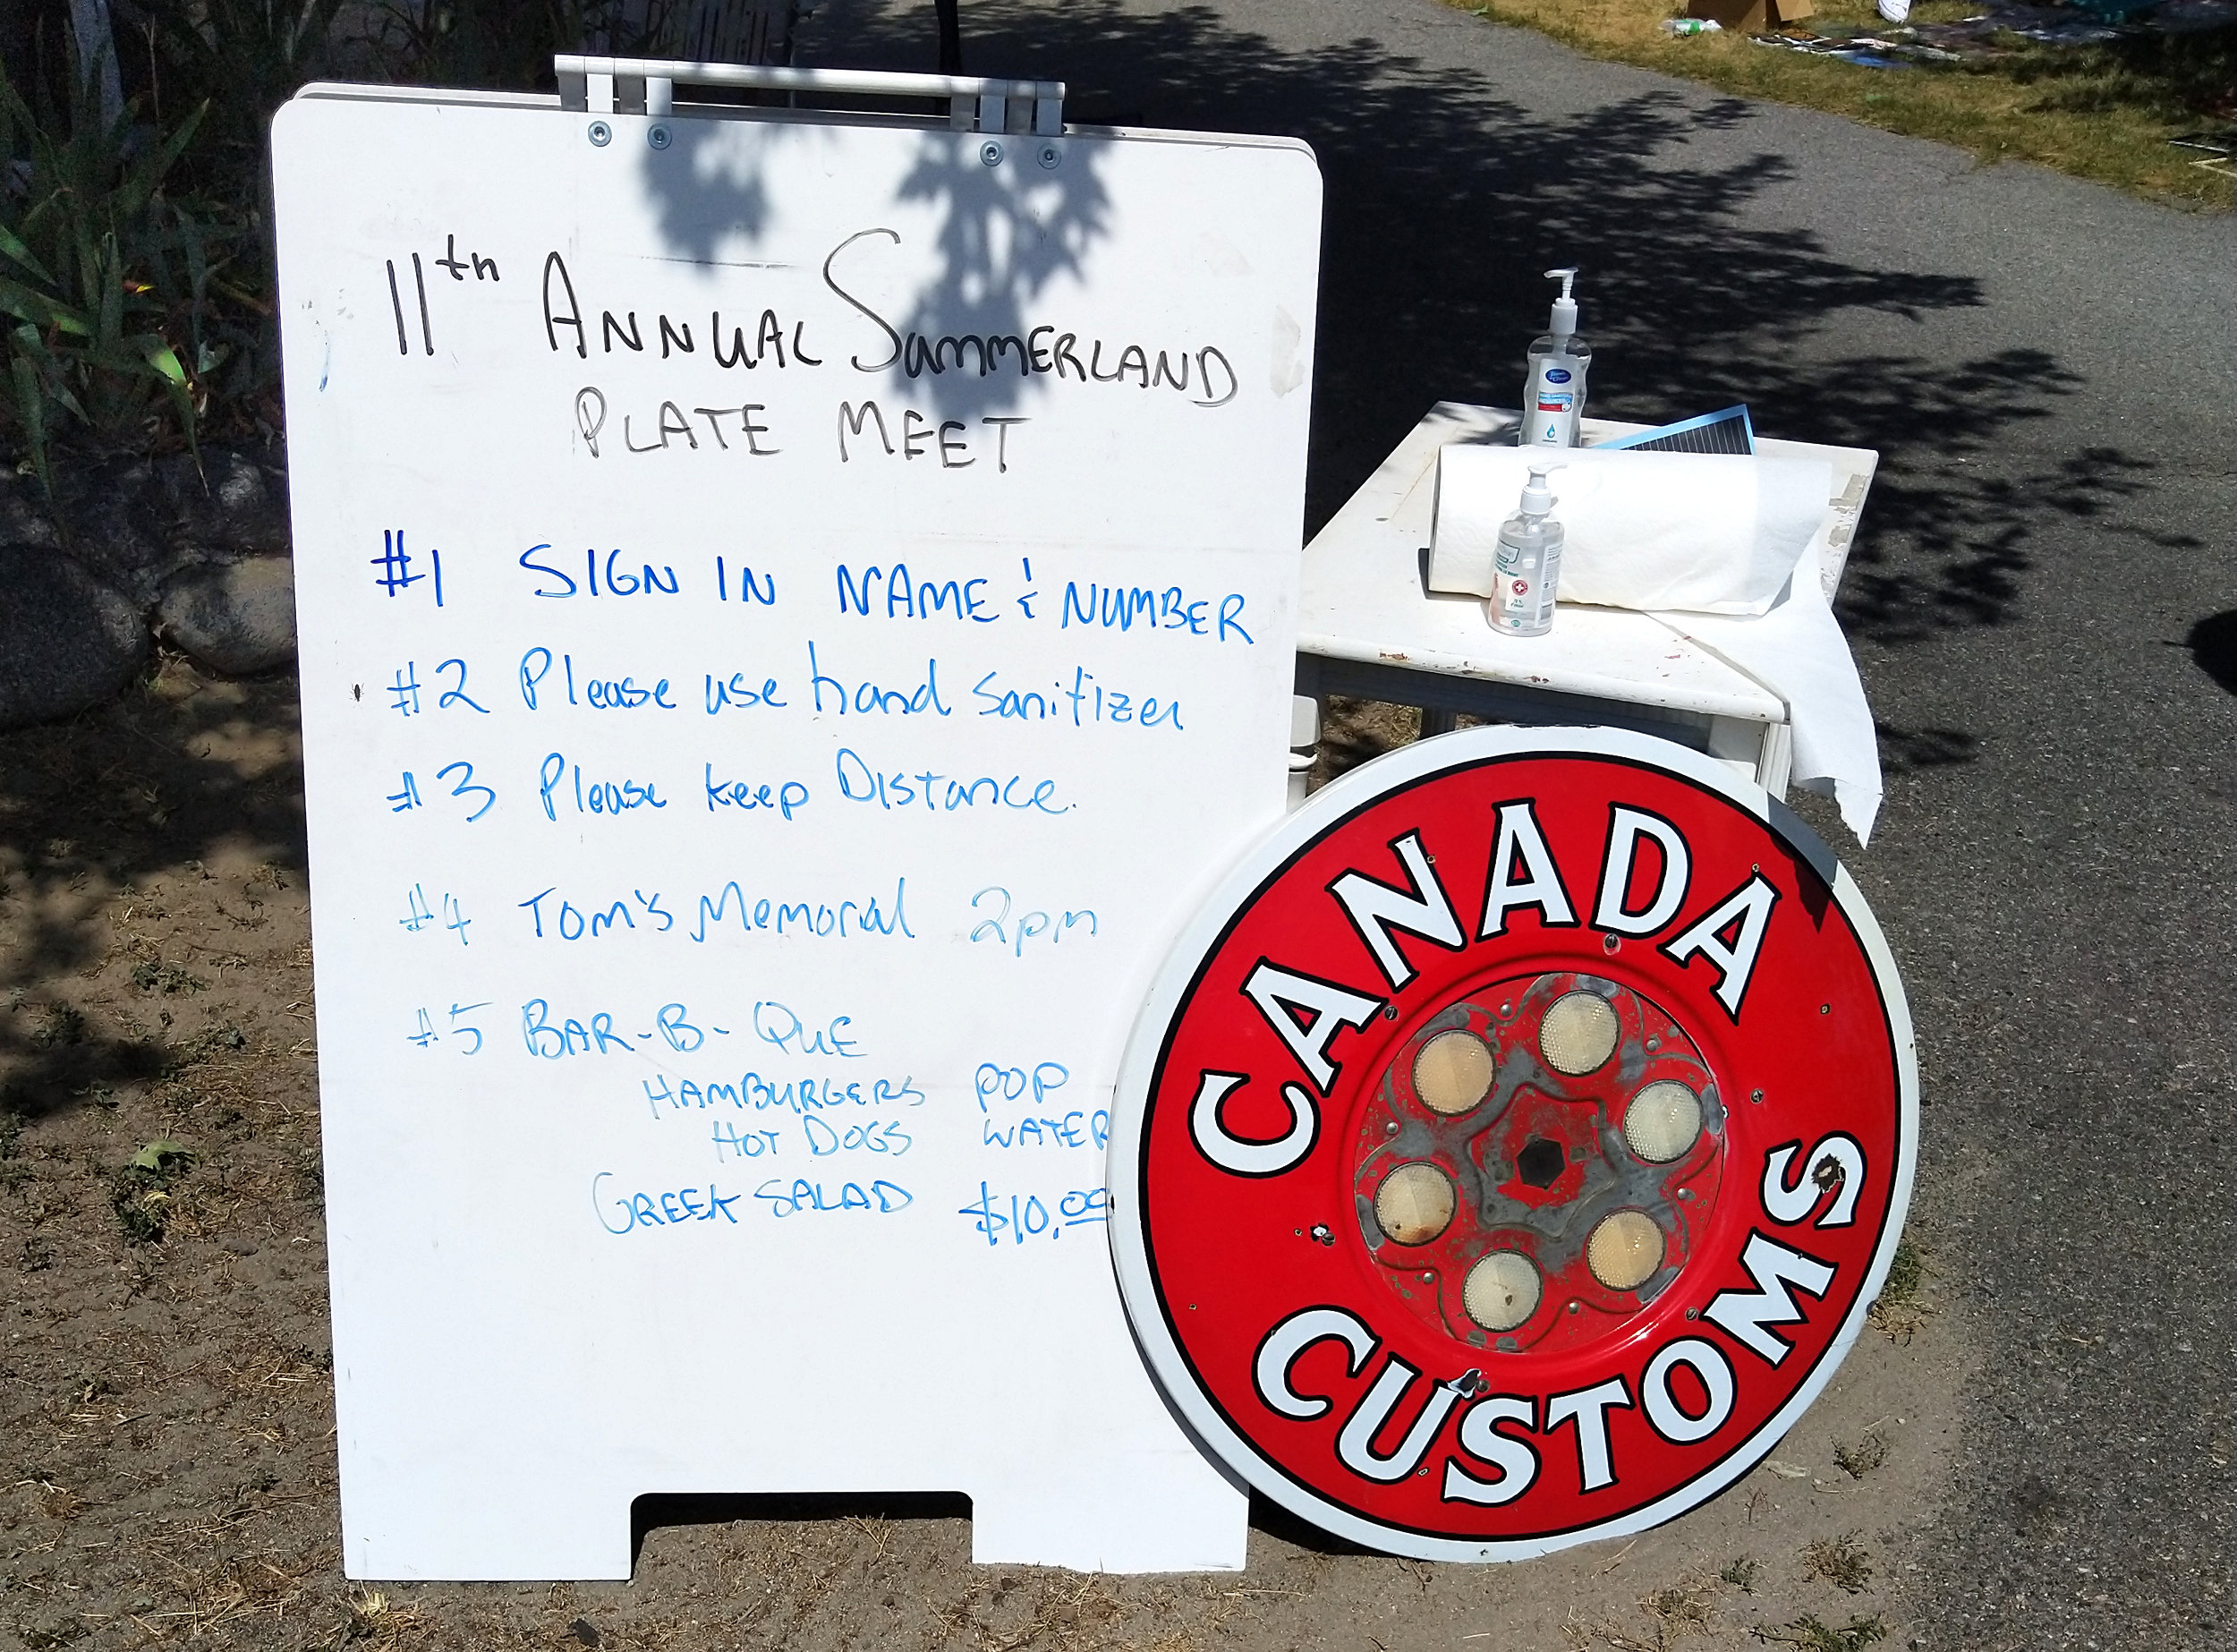 11th ANNUAL SUMMERLAND
PLATE MEET
#1 SIGN IN NAME & NUMBER
#2 Please use hand sanitizer
#3 Please keep Distance.
#4 Tom's Memoral 2pm
#5 BAR-B-QUE
HAMBURGERS POP
HOT DOGS WATER
GREEK SALAD $10.00
CANADA
CUSTOMS